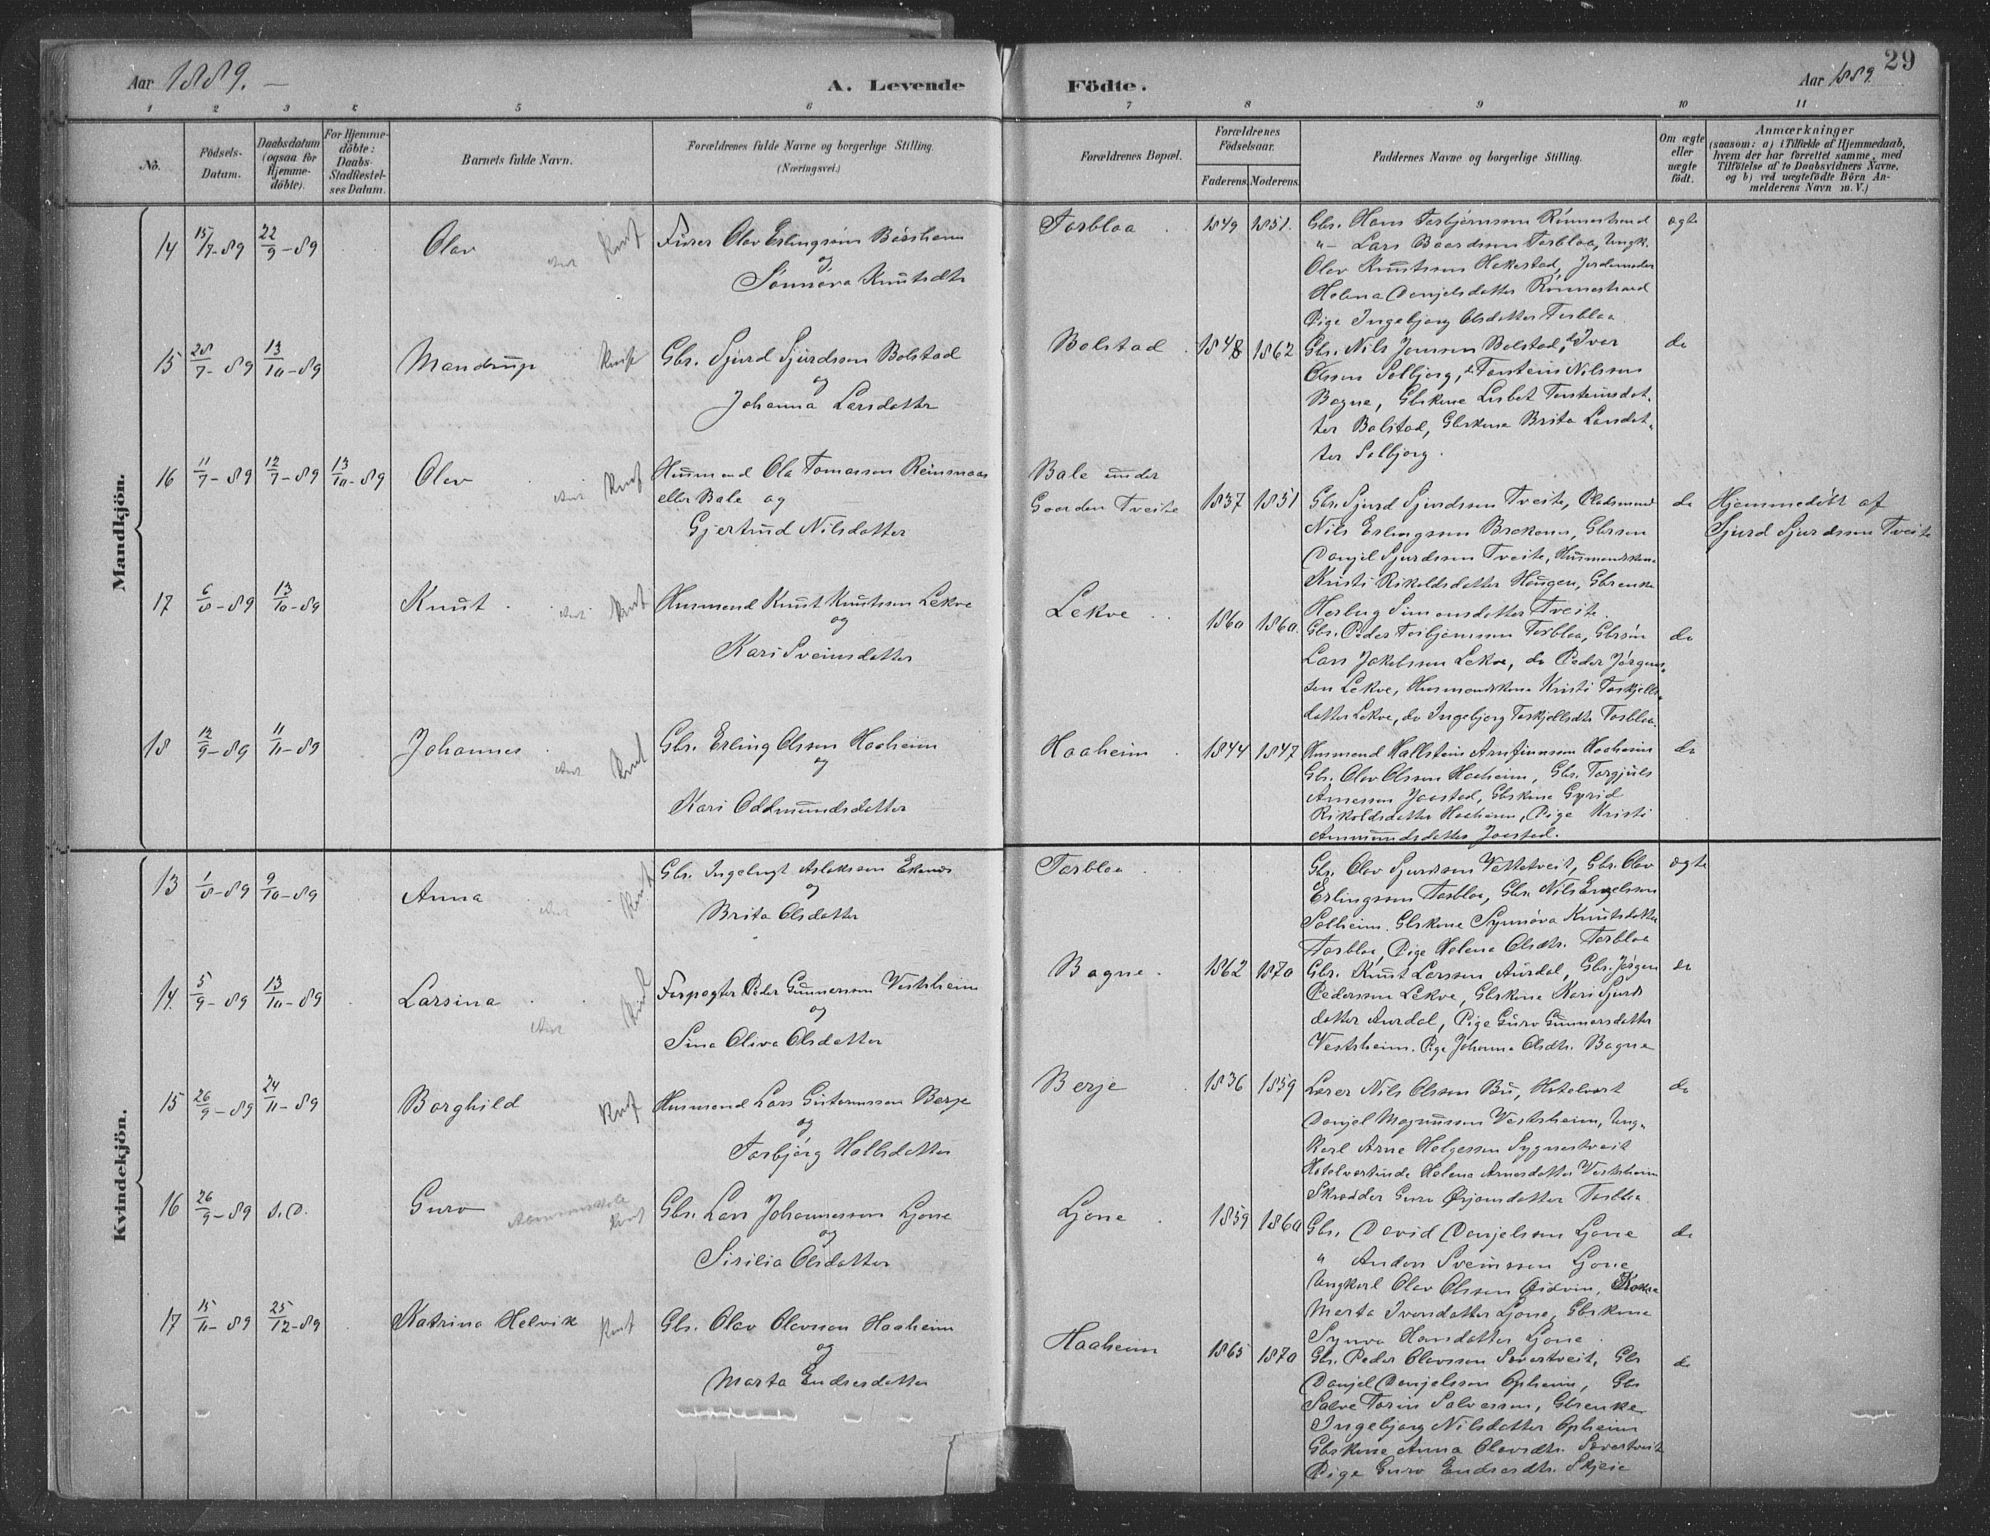 29
Aar 1889. A. Levende Födte. Aar 1889
1 2 3 4 5 6 7 8 9 10 11
No. Födsels-Datum. Daabsdatum (ogsaa for Hjemme-döbte). For Hjemme-döbte: Daabs-Stadfæstel-ses Datum. Barnets fulde Navn. Forældrenes fulde Navne og borgerlige Stilling. (Næringsvei.) Forældrenes Bopæl. Forældrenes Födselsaar. Faderens. Moderens. Faddernes Navne og borgerlige Stilling. Om ægte eller uægte födt. Anmærkninger (saasom: a) i Tilfælde af Hjemmedaab, hvem der har forrettet samme, med Tilföielse af to Daabsvidners Navne, og b) ved uægtefödte Börn An-melderens Navn m. V.)
Mandkjön.
14 15/7-89 22/9-89 Olav
Olav Erlingsøn
og
Sønnøva Knutsdtr
Torbloa 1849 1851.
Gbr. Hans Torbjørnssøn Rønnestrand
"- Lars Baardssøn Torbloa, Ungk.
Olav Knutssøn Hakestad, Jordemoder
Helena Danjelsdatter Rønnestrand
Pige Ingebjørg Olsdatter Torbloa
ægte
15 28/7-89 13/10-89 Mandrup
Gbr. Sjurd Sjurdssøn Bolstad
og
Johanna Larsdatter
Bolstad 1848 1862
Gbr. Nils Jonssøn Bolstad, Ivar
Olssøn Solbjørg, Torstein Nilssøn
Bagne, Gbrkone Lisbet Torsteinsdat-
ter Bolstad, Gbrkone Brita Larsdat-
ter Solbjørg.
do
16 11/7-89 12/7-89 13/10-89 Olav
Husmand Ola Tomassøn Reinsnaas
eller Bale og
Gjertrud Nilsdatter
Bale under
Gaarden Tveite 1837 1851
Gbr. Sjurd Sjurdssøn Tveite, Pladsmand
Nils Erlingssøn Brekene, Gbrsøn
Danjel Sjurdssøn Tveite, Husmandskone
Kristi Rikoldsdatter Haugen, Gbrenke
Herbug Simonsdatter Tveite.
do
Hjemmedøbt af
Sjurd Sjurdssøn Tveite
17 6/8-89 13/10-89 Knut
Husmand Knut Knutssøn Lekve
og
Kari Sveinsdatter
Lekve 1860 1860.
Gbr. Peder Torbjørnssøn Torbloa, Gbrsøn
Lars Jakobssøn Lekve, do Peder Jørgens-
søn Lekve, Husmandskone Kristi Torkjells-
datter Lekve, do Ingebjørg Torkjellsdtr Torbloa.
do
18 12/9-89 11/11-89 Johannes
Gbr. Erling Olssøn Haaheim
og
Kari Oddmundsdatter
Haaheim 1844 1847
Husmand Hallstein Arnfinnssøn Haaheim
Gbr. Olav Olssøn Haaheim, Gbr. Torgjuls
Arnessøn Jaastad, Gbrkone Gyrid
Rikoldsdatter Haaheim, Pige Kristi
Ammundsdatter Jaastad.
do
Kvindekjön.
13 1/8-89 9/10-89 Anna
Gbr. Ingebrigt Aslakssøn
og
Brita Olsdatter
Torbloa
Gbr. Olav Sjurdssøn Vettetveit, Gbr. Olav
Erlingssøn Torbloa, Gbr. Nils Engelssøn
Solheim. Gbrkone Synnøva Knutsdatter
Torbloa, Pige Helena Olsdtr. Torbloa
ægte
14. 5/9-89 13/10-89 Larsina
Forpagter Peder Gunnarssøn Vestrheim
og
Sina Oliva Olsdatter
Bagne. 1862 1870
Gbr. Knut Larssøn Aurdal, Gbr. Jørgen
Pederssøn Lekve, Gbrkone Kari Sjurds
datter Aurdal, Pige Guro Gunnarsdatter
Vestrheim. Pige Johanna Olsdtr. Bagne
do
15 26/9-89 24/11-89 Borghild
Husmand Lars Guttormssøn Berje
og
Torbjørg Hallsdatter
Berje 1836 1859
Lærer Nils Olssøn Bu, Hotelvert
Danjel Magnussøn Vestrheim, Ung-
karl Arne Helgessøn Sygnestveit
Hotelvertinde Helena Arnesdatter Vestrheim
Skrædder Guro Ørjansdatter Torbloa
do
16 26/9-89 s.D. Guro
Gbr. Lars Johannessøn Ljone
og
Sirilia Olsdatter
Ljone 1859 1860
Gbr. David Danjelssøn Ljone
" Anders Sveinssøn Ljone
Ungkarl Olav Olssøn Øidvin,
Marta Ivarsdatter Ljone, Gbrkone
Synva Hansdatter Ljone.
do
17 15/11-89 25/12-89 Katrina Helvik
Gbr. Olav Olavssøn Haaheim
og
Marta Endresdatter
Haaheim 1865 1870
Gbr. Peder Olavssøn Sævertveit, Gbr
Danjel Danjelssøn Opheim, Gbr
Salve Torin Salvessøn, Gbrenke
Ingebjørg Nilsdatter Opheim
Gbrkone Anna Olavsdtr. Sævertveit
Pige Guro Endresdtr. Skjeie
do